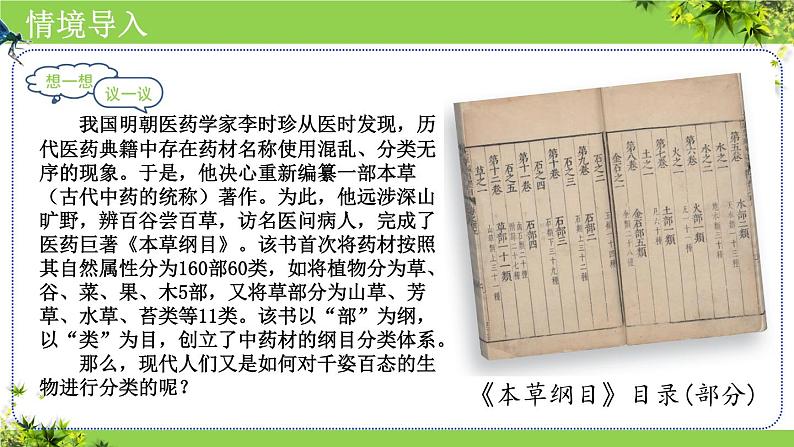 情境导入
想一想
议一议
我国明朝医药学家李时珍从医时发现，历
代医药典籍中存在药材名称使用混乱、分类无
序的现象。于是，他决心重新编纂一部本草
（古代中药的统称）著作。为此，他远涉深山
旷野，辨百谷尝百草，访名医问病人，完成了
医药巨著《本草纲目》。该书首次将药材按照
其自然属性分为160部60类，如将植物分为草、
谷、菜、果、木5部，又将草部分为山草、芳
草、水草、苔类等11类。该书以“部”为纲，
以“类”为目，创立了中药材的纲目分类体系。
那么，现代人们又是如何对千姿百态的生
物进行分类的呢？
第五卷
水之二
水部二類
第六卷
火之一
火部一類
第七卷
土之一
土部一類
第八卷
金石之一
金石部五類
第九卷
石之三
石部二
第十卷
石之四
石部三
第十一卷
石之五
石部四
第十二卷
草之一
草部一
《本草纲目》目录(部分)